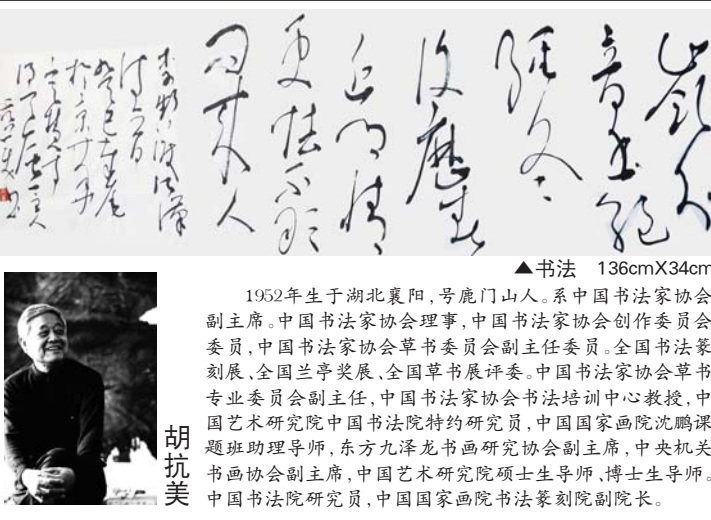 嶺外
音書絕
經冬
復歷春
近鄉情
更怯不敢
問來人
▲书法 136cmX34cm
1952年生于湖北襄阳,号鹿门山人。系中国书法家协会
副主席。中国书法家协会理事,中国书法家协会创作委员会
委员,中国书法家协会草书委员会副主任委员。全国书法篆
刻展、全国兰亭奖展、全国草书展评委。中国书法家协会草书
专业委员会副主任,中国书法家协会书法培训中心教授,中
国艺术研究院中国书法院特约研究员,中国国家画院沈鹏课
题班助理导师,东方九泽龙书画研究协会副主席,中央机关
书画协会副主席,中国艺术研究院硕士生导师、博士生导师。
中国书法院研究员,中国国家画院书法篆刻院副院长。
胡抗美